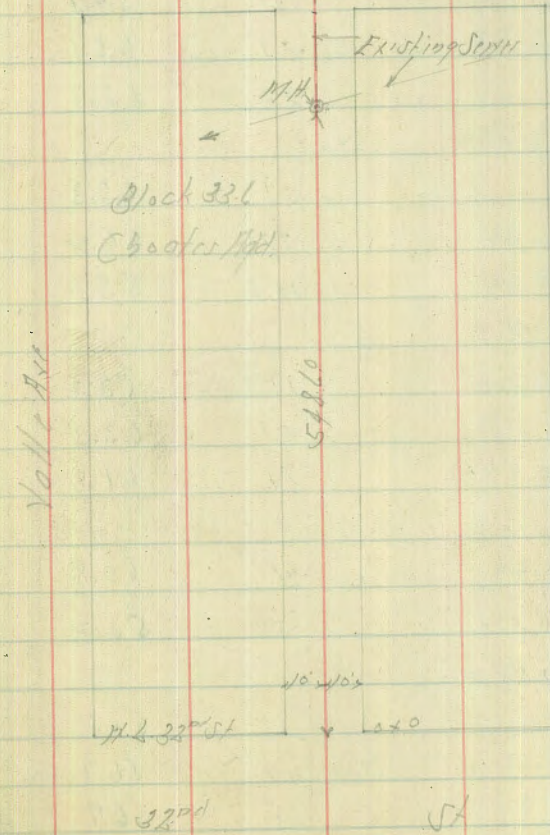 Existing Sewer
M.H.
Block 336
Choates Add.
Valle Ave
548.60
10' 10'
N.L. 32nd St
0+0
32nd St